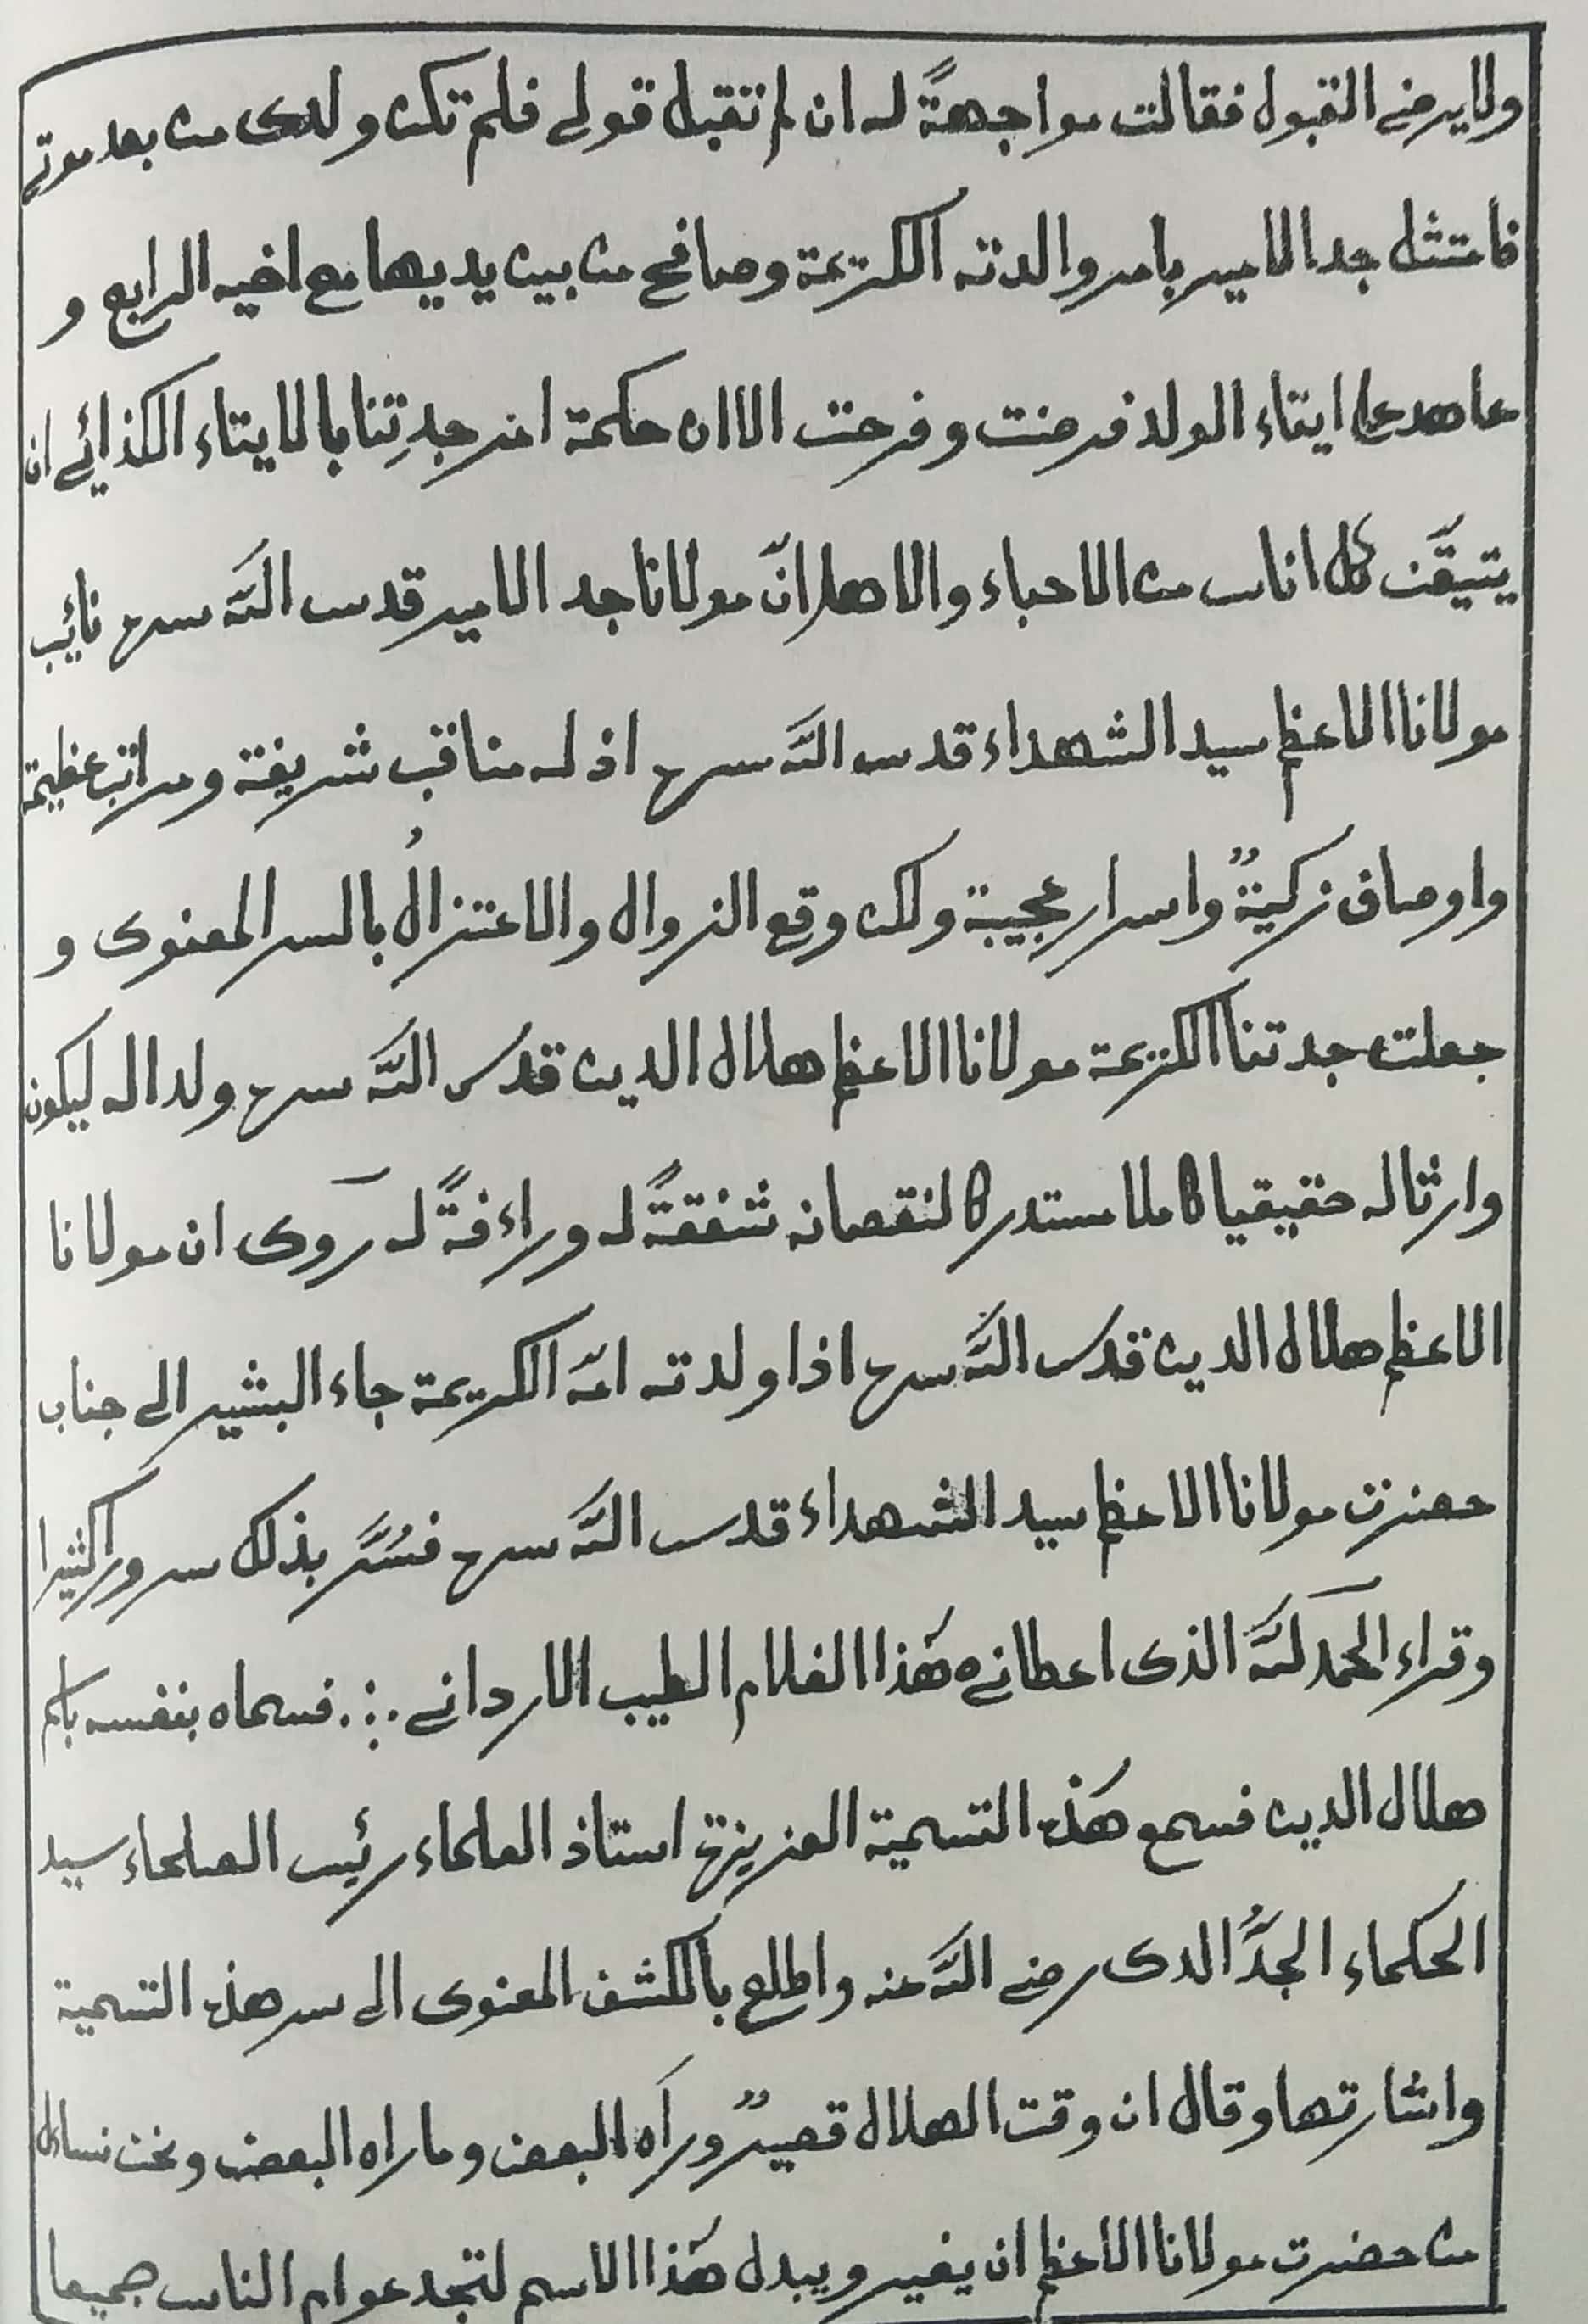 ولايرضى القبول فقالت مواجهةً له ان لم تقبل قولى فلم تكن ولدى من بعد موتى
فامتثل جد الامير بامر والدته الكريمة وصافح من بين يديها مع اخيه الرابع و
عاهد على ايتاء الولد فرضت وفرحت الا ان حكمة امر جدتِنا بالايتاء الكذائى ان
يتيقّن كل اناس من الاحباء والاهل انّ مولانا جد الامير قدس اللّه سره نائب
مولانا الاعظم سيد الشهداء قدس اللّه سره اذ له مناقب شريفة ومراتب عظيمة
واوصاف زكيةٌ واسرار عجيبة ولكن وقع الزوال والاعتزالُ بالسر المعنوى و
جعلت جدتنا الكريمة مولانا الاعظم هلال الدين قدس اللّه سره ولدا له ليكون
وارثا له حقيقيا كاملا مستدركا لنقصانه شفقةً له وراءفةً له روى ان مولانا
الاعظم هلال الدين قدس اللّه سره اذا ولدته امّه الكريمة جاء البشير الى جناب
حضرت مولانا الاعظم سيد الشهداء قدس اللّه سره فسُرَّ بذلك سرورا كثيرا
وقراء الحمد للّه الذى اعطانى ه هٰذا الغلام الطيب الاردانى ∴ فسماه بنفسه باسم
هلال الدين فسمع هٰذه التسمية العزيزة استاذ العلماء رئيس الصلحاء سيد
الحكماء الجدُّ الدى رضى اللّه عنه واطلع بالكشف المعنوى الى سر هذه التسمية
واشارتها وقال ان وقت الهلال قصيرٌ ورآه البعض وما راه البعض ونحن نساءل
من حضرت مولانا الاعظم ان يغير ويبدل هٰذا الاسم لتجد عوام الناس جميعا